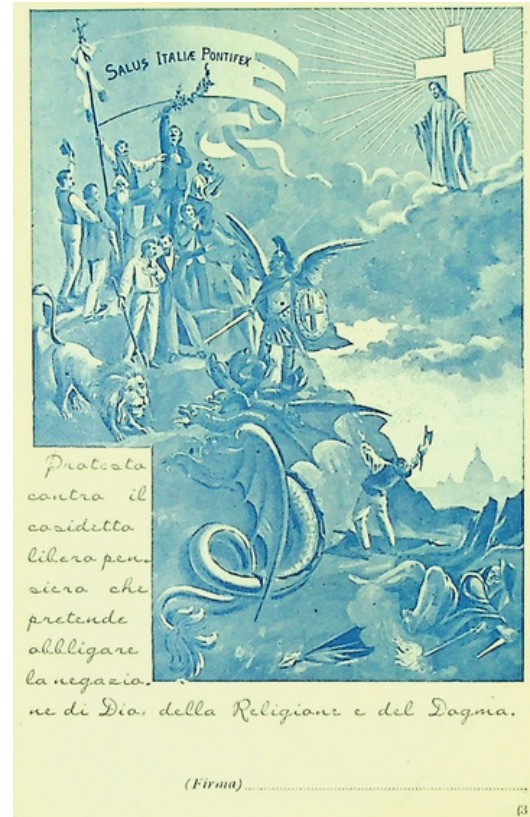 SALUS ITALIÆ PONTIFEX
Protesto
contro il
cosidetto
libero pen-
siero che
pretende
obbligare
la negazio-
ne di Dio, della Religione e del Dogma.
(Firma)
63